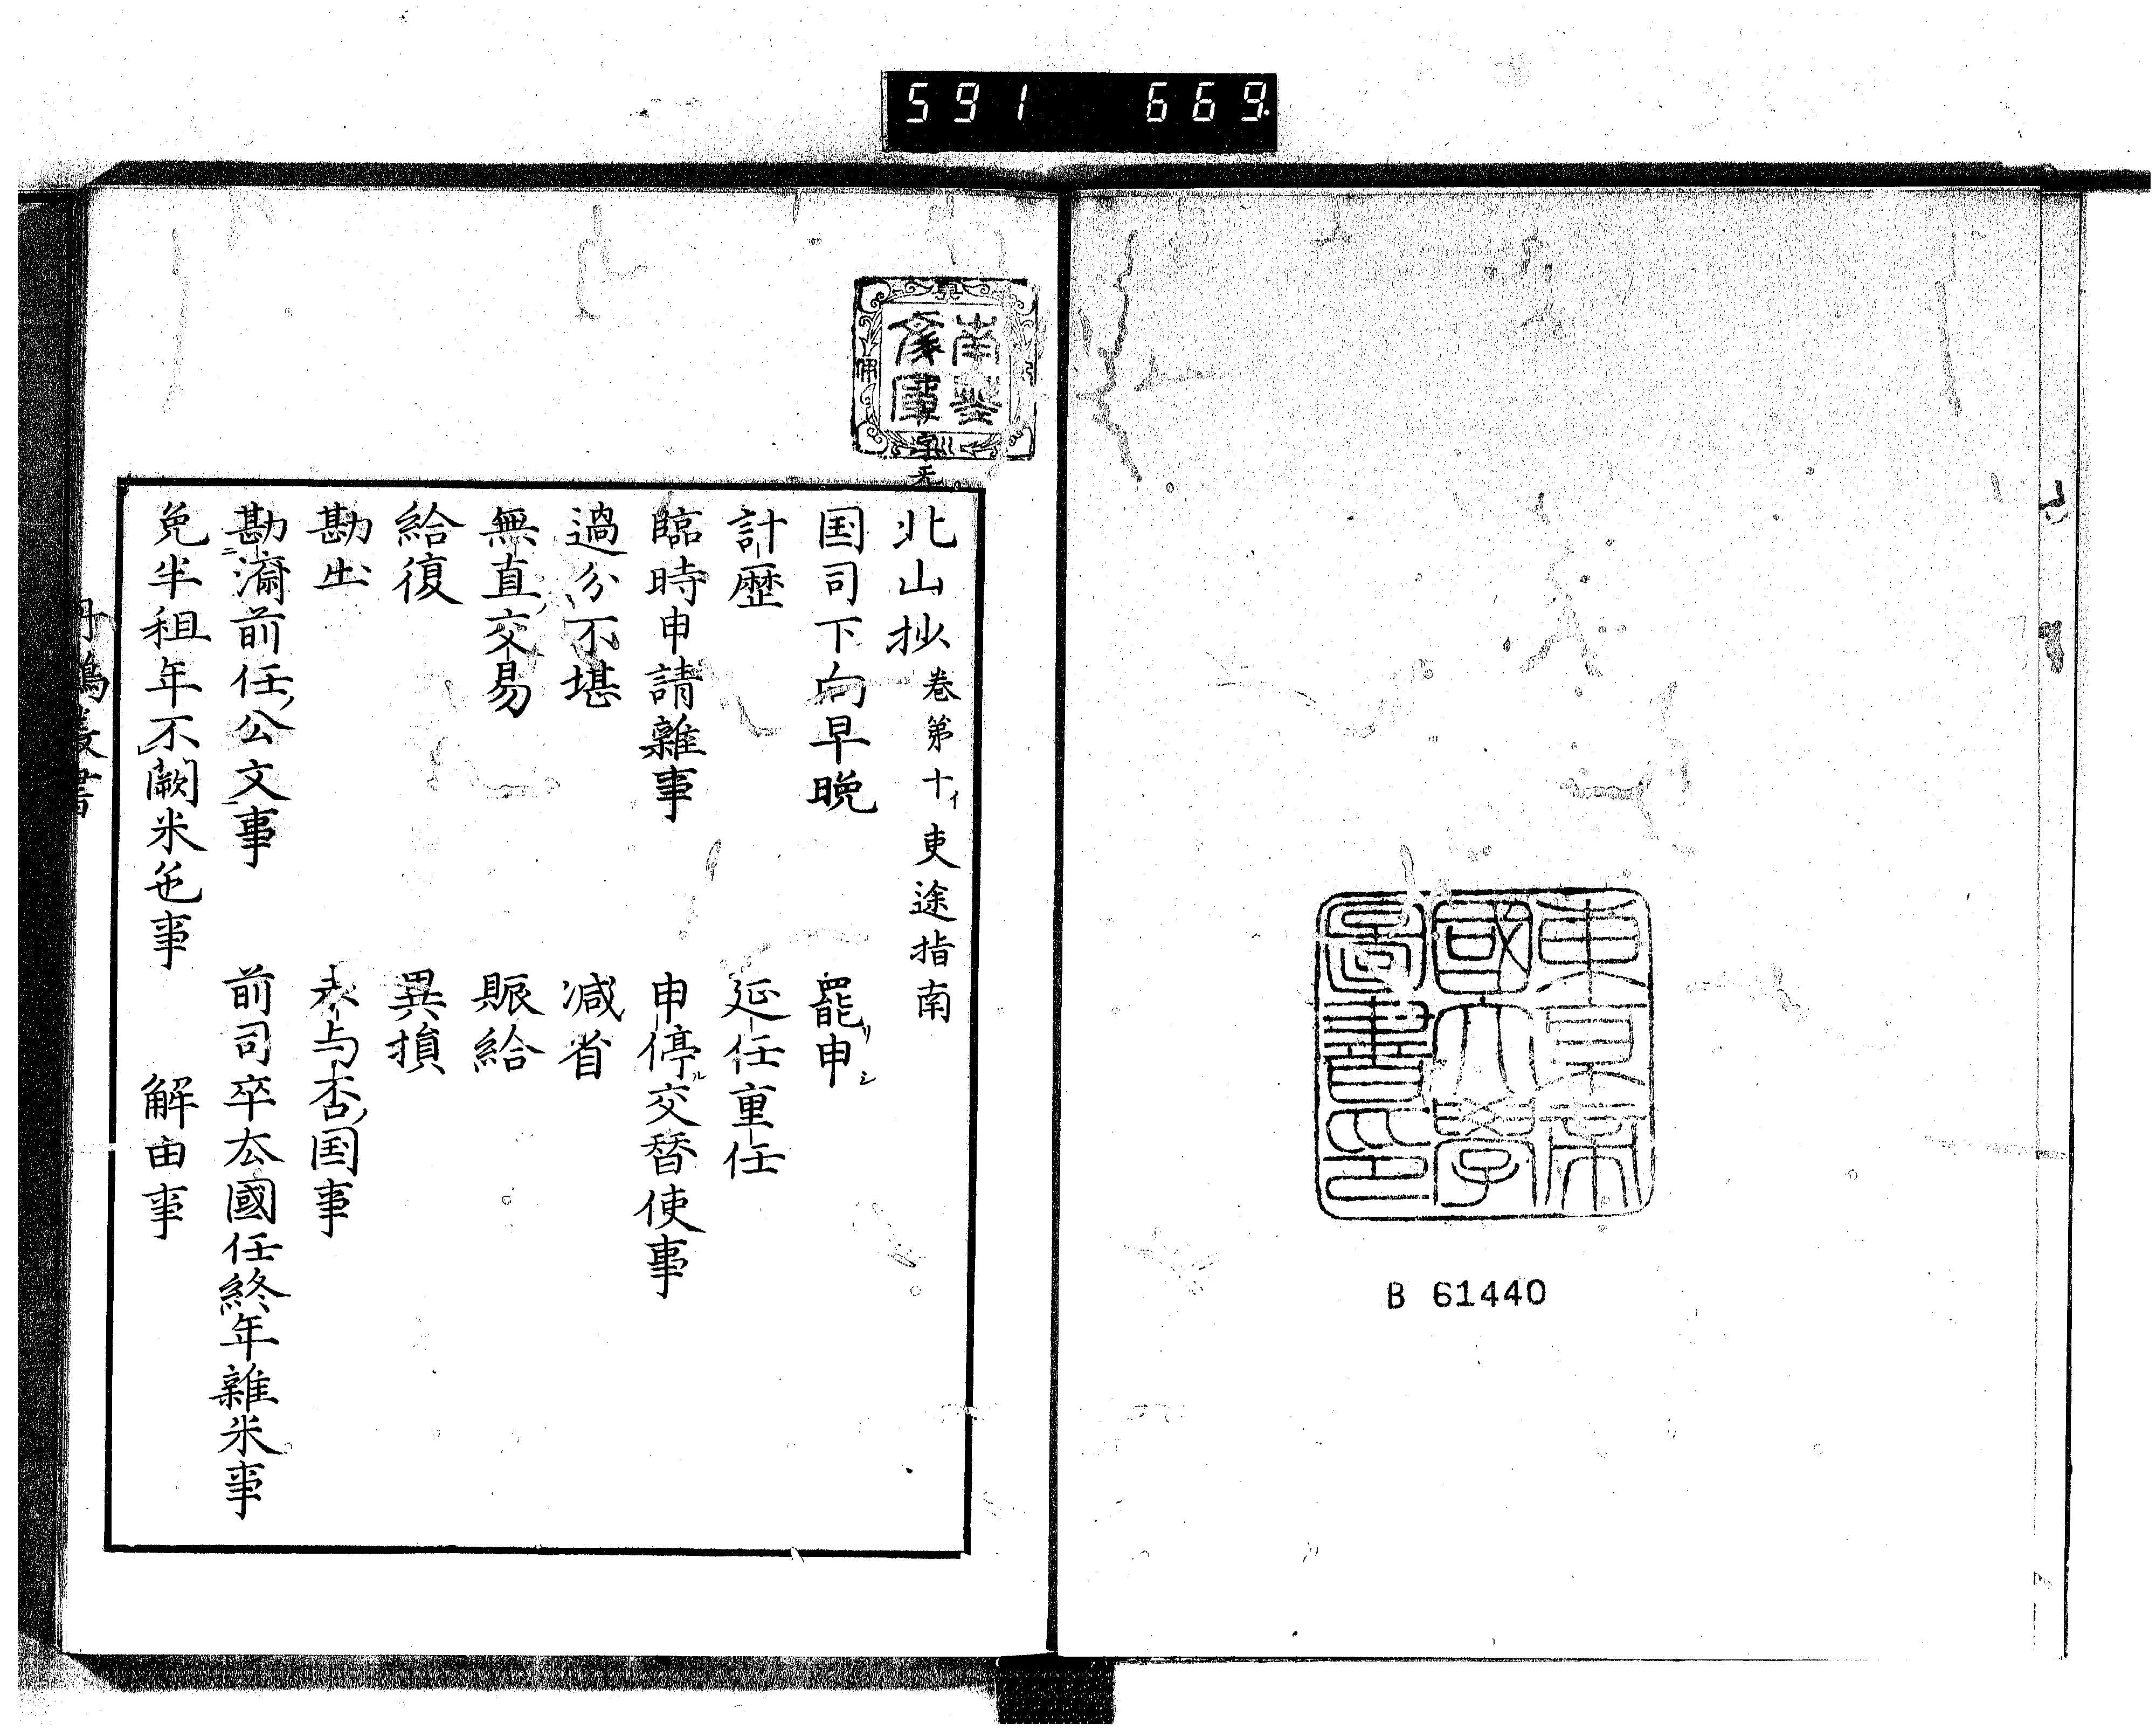 591 669
東京帝
國大學
圖書印
B 61440
南葵
文庫
北山抄 卷第十イ 吏途指南
国司下向早晩 罷リ申シ
計歴 延任重任
臨時申請雜事 申停ル交替使事
過分不堪 減省
無直交易 賑給
給復 異損
勘出 未与否国事
勘濟前任公文事 前司卒去國任終年雜米事
免半租年不闕米色事 解由事
丹鶴叢書